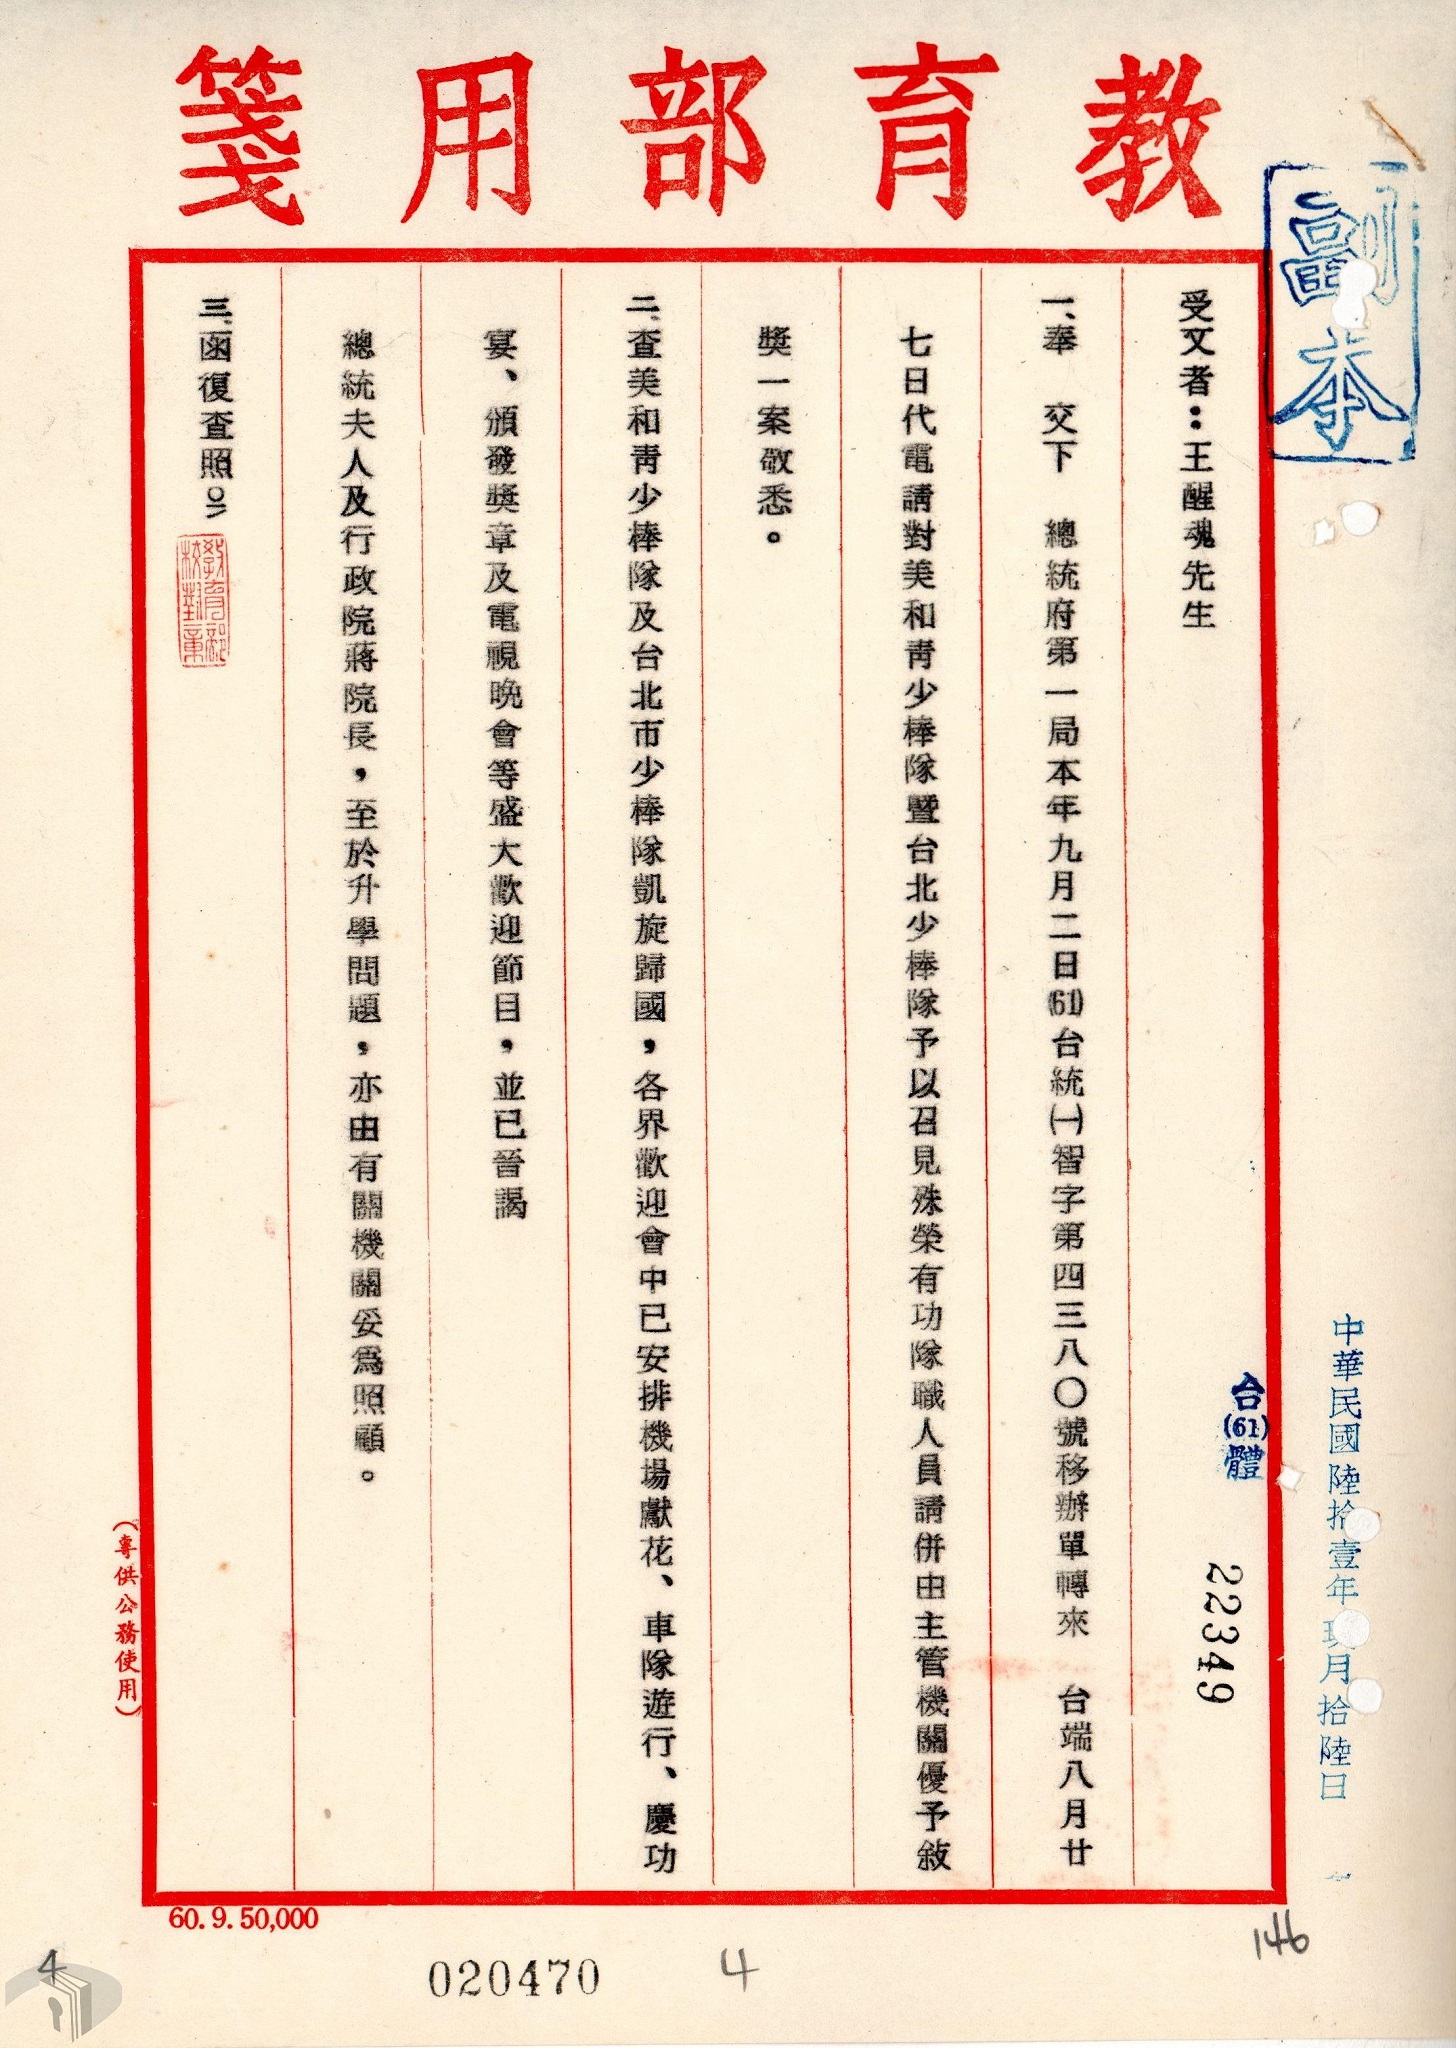 教育部用箋
副本
中華民國陸拾壹年玖月拾陸日
台(61)體
22349
受文者：王醒魂先生
一、奉　交下　總統府第一局本年九月二日(61)台統㈠智字第四三八〇號移辦單轉來　台端八月廿
七日代電請對美和靑少棒隊暨台北少棒隊予以召見殊榮有功隊職人員請併由主管機關優予敍
獎一案敬悉。
二、查美和靑少棒隊及台北市少棒隊凱旋歸國，各界歡迎會中已安排機場獻花、車隊遊行、慶功
宴、頒發獎章及電視晚會等盛大歡迎節目，並已晉謁
總統夫人及行政院蔣院長，至於升學問題，亦由有關機關妥爲照顧。
三、函復查照。
敎育部
校對章
（專供公務使用）
60. 9. 50,000
020470
4
146
4